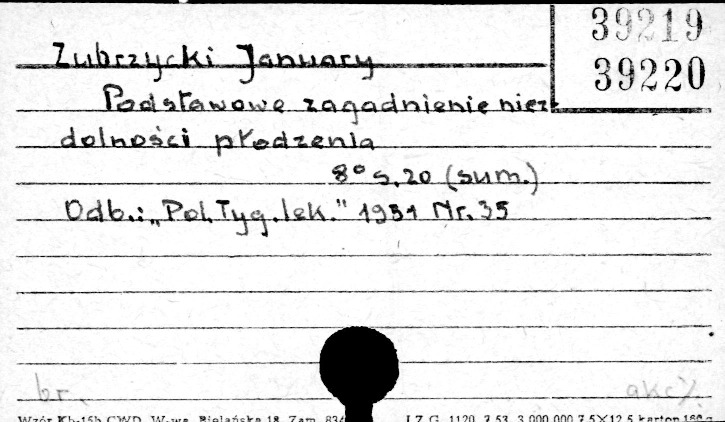 39219
39220
Zubrzycki January
Podstawowe zagadnienie niez-
dolności płodzenia
8° s. 20 (sum.)
Odb.: „Pol. Tyg. lek." 1951 Nr. 35
br. akc.
Wzór Kb-15b CWD, W-wa, Bielańska 18, Zam. 834 1120 7.53 3.000.000 7,5×12,5 karton